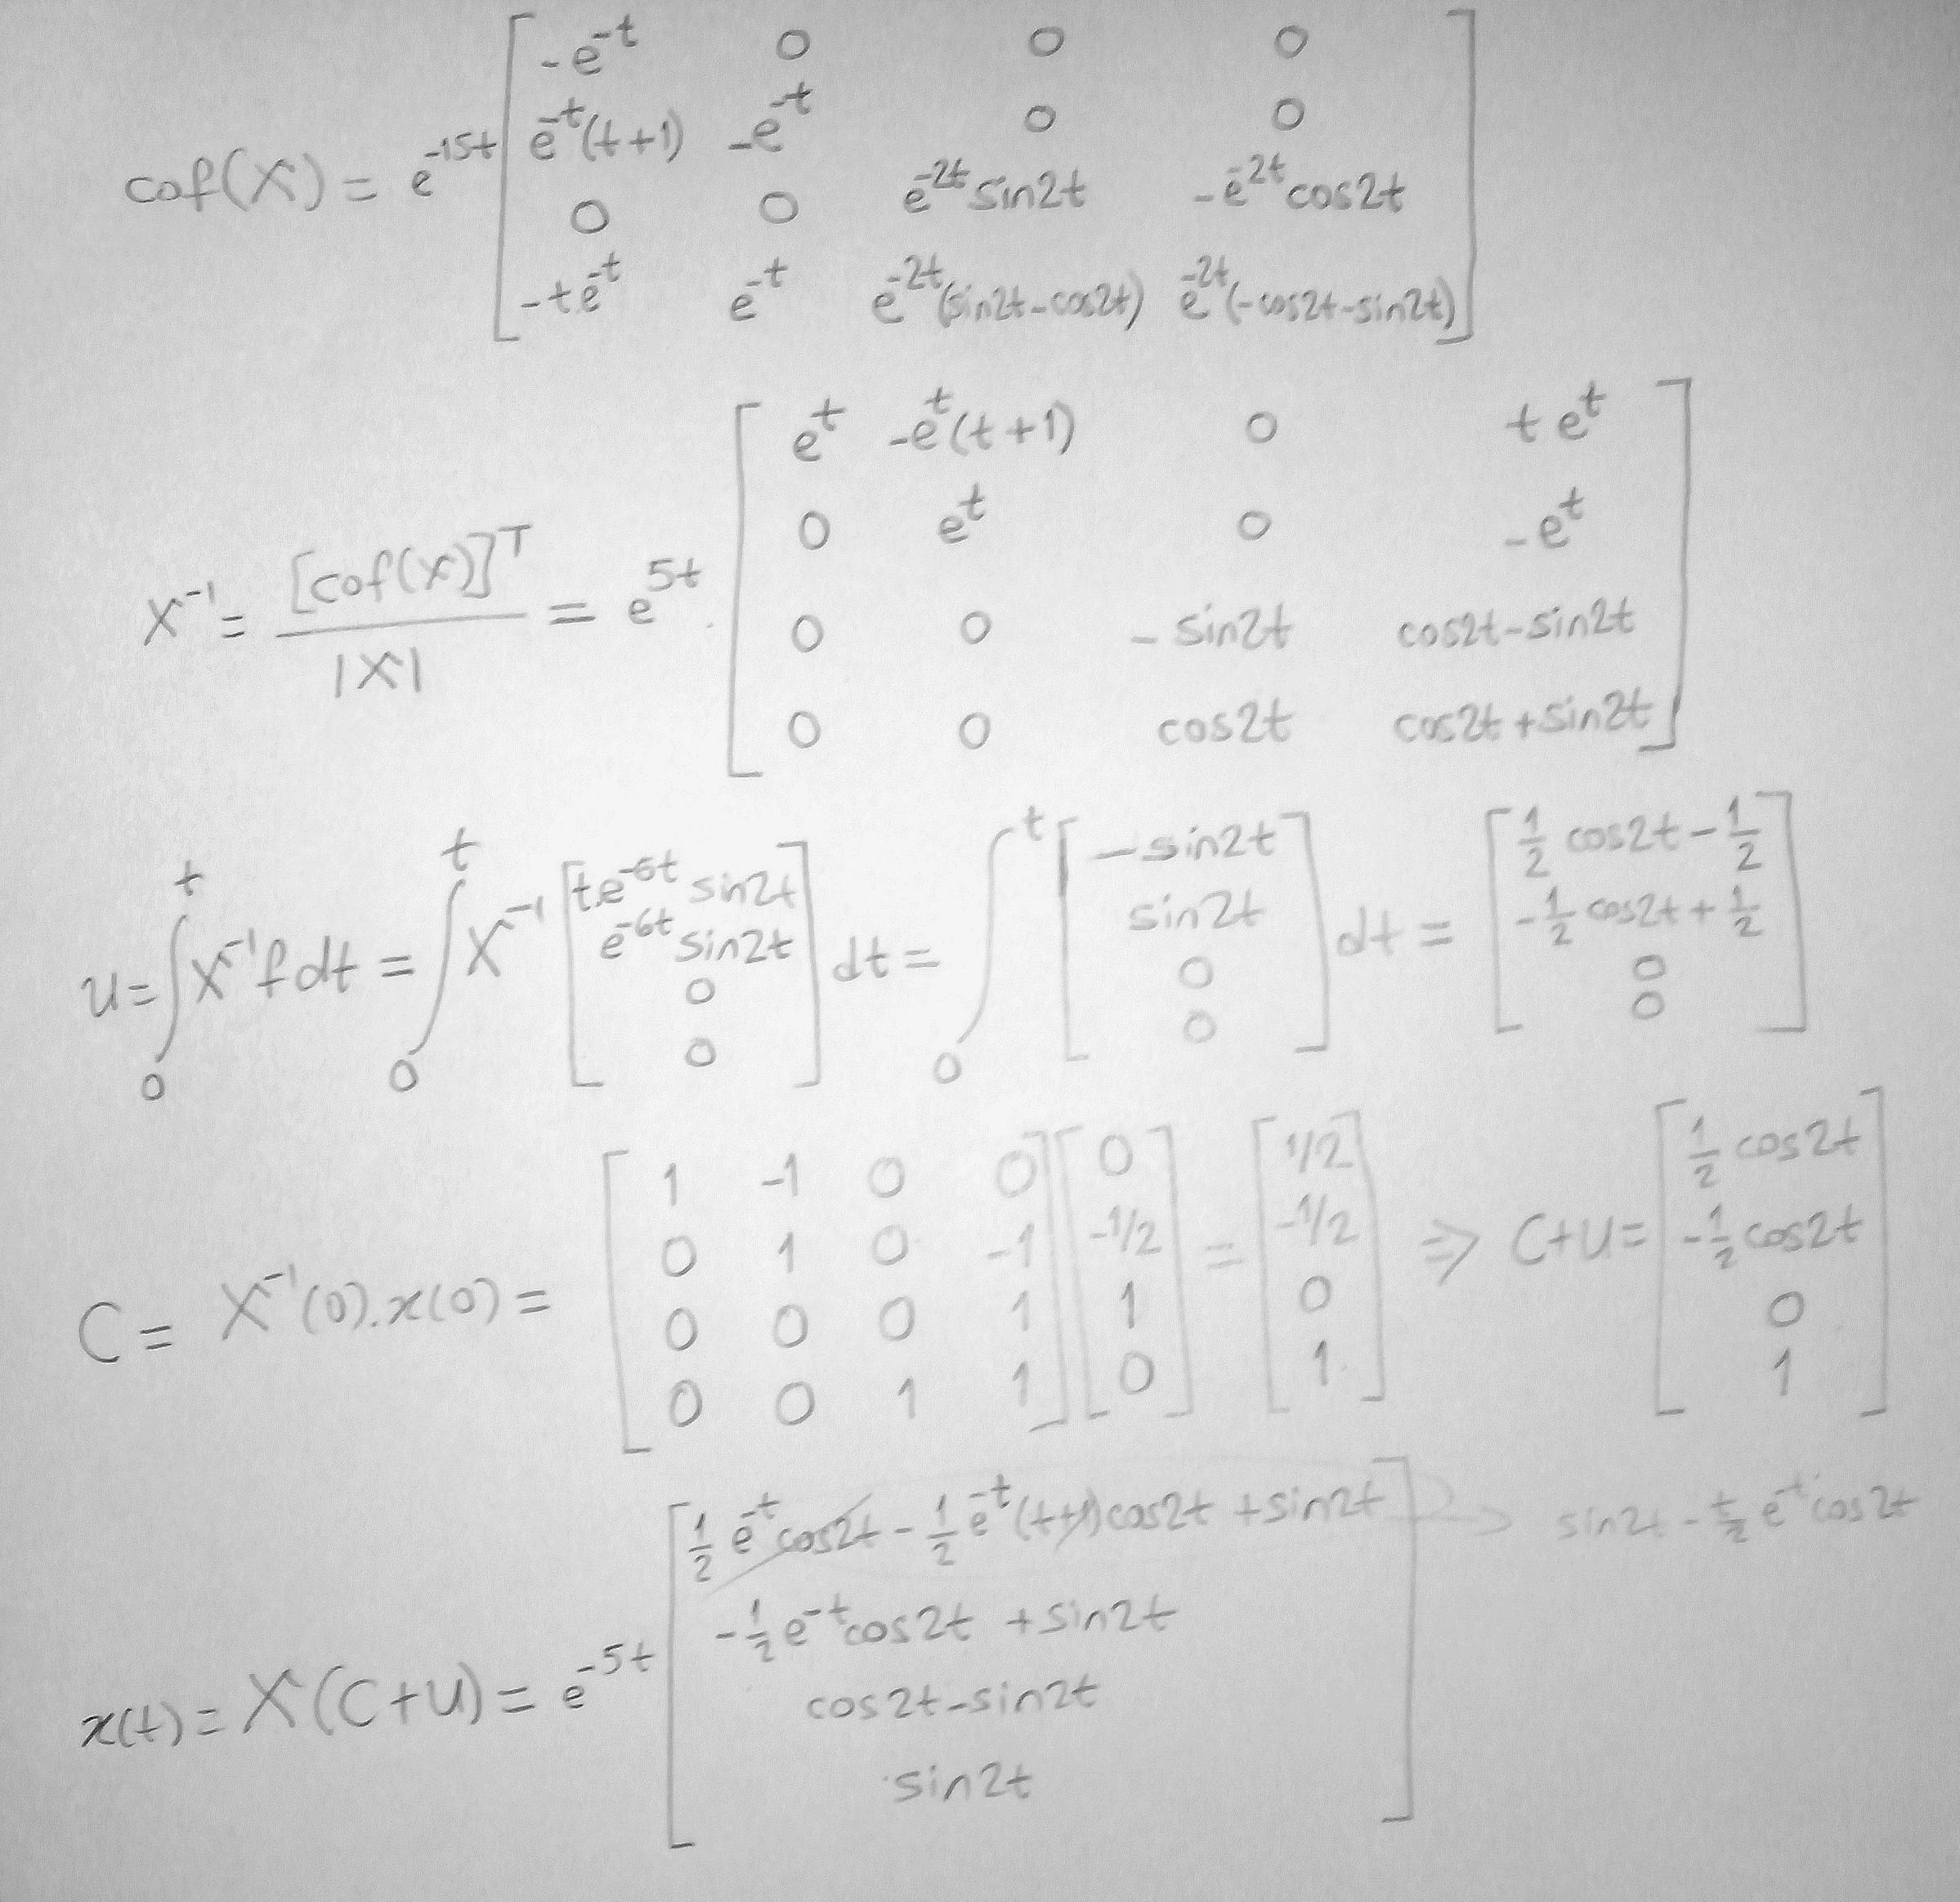 cof(X) = e^{-15t} [ -e^{-t} 0 0 0
e^{-t}(t+1) -e^{-t} 0 0
0 0 e^{-2t} sin2t -e^{-2t} cos2t
-t.e^{-t} e^{-t} e^{-2t}(sin2t-cos2t) e^{-2t}(-cos2t-sin2t) ]
X^{-1} = [cof(X)]^T / |X| = e^{5t}. [ e^t -e^t(t+1) 0 te^t
0 e^t 0 -e^t
0 0 -sin2t cos2t-sin2t
0 0 cos2t cos2t+sin2t ]
u = ∫_0^t X^{-1} f dt = ∫_0^t X^{-1} [ t.e^{-6t} sin2t ; e^{-6t} sin2t ; 0 ; 0 ] dt = ∫_0^t [ -sin2t ; sin2t ; 0 ; 0 ] dt = [ 1/2 cos2t - 1/2 ; -1/2 cos2t + 1/2 ; 0 ; 0 ]
C = X^{-1}(0).x(0) = [ 1 -1 0 0 ; 0 1 0 -1 ; 0 0 0 1 ; 0 0 1 1 ] [ 0 ; -1/2 ; 1 ; 0 ] = [ 1/2 ; -1/2 ; 0 ; 1 ] ⇒ C+U = [ 1/2 cos2t ; -1/2 cos2t ; 0 ; 1 ]
x(t) = X(C+U) = e^{-5t} [ 1/2 e^{-t} cos2t - 1/2 e^{-t}(t+1)cos2t + sin2t → sin2t - t/2 e^{-t} cos2t
-1/2 e^{-t} cos2t + sin2t
cos2t-sin2t
sin2t ]